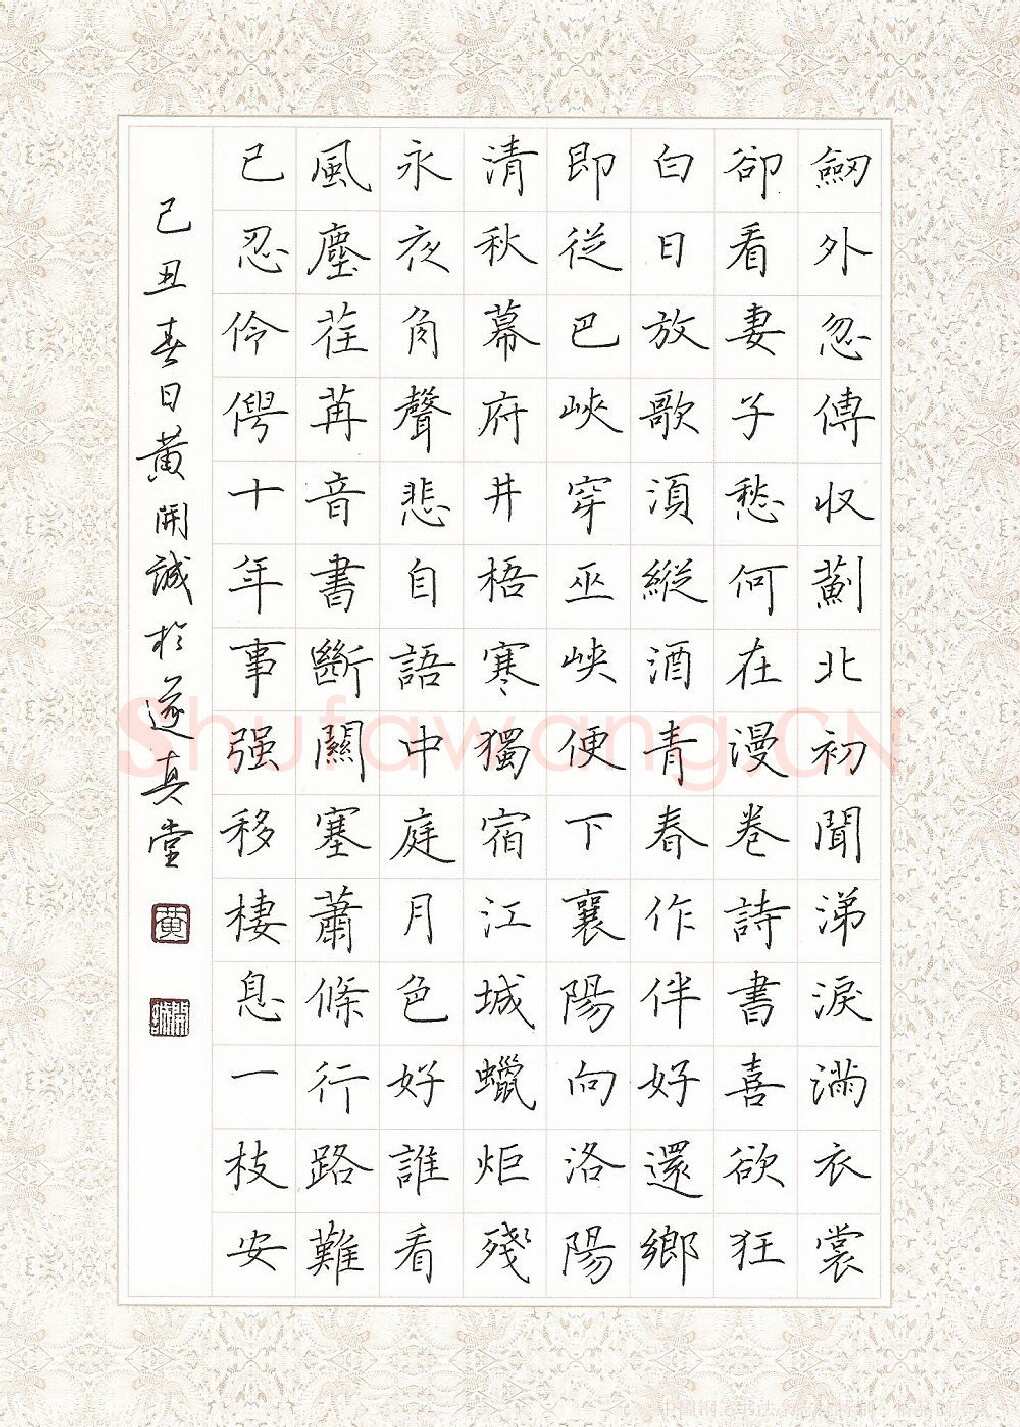 劒外忽傳収薊北初聞涕淚滿衣裳
卻看妻子愁何在漫卷詩書喜欲狂
白日放歌須縱酒青春作伴好還鄉
即從巴峽穿巫峽便下襄陽向洛陽
清秋幕府井梧寒獨宿江城蠟炬殘
永夜角聲悲自語中庭月色好誰看
風塵荏苒音書斷關塞蕭條行路難
已忍伶俜十年事强移棲息一枝安
己丑春日黃開誠於遂真堂
黃
開誠
Shufawang.CN